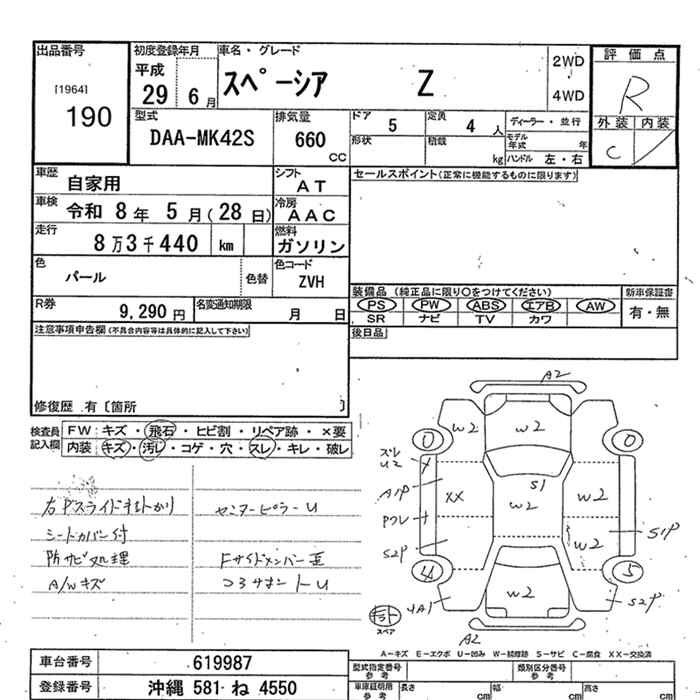 出品番号
[1964]
190
初度登録年月
平成
29 6月
車名・グレード
スペーシア Z
2WD
4WD
評価点
R
外装 内装
C
型式
DAA-MK42S
排気量
660
CC
ドア
5
定員
4 人
形状
積載
kg
ディーラー・並行
モデル年式 年
ハンドル 左・右
車歴
自家用
シフト
AT
セールスポイント(正常に機能するものに限ります)
車検
令和 8年 5月(28日)
冷房
AAC
走行
8万3千440 km
燃料
ガソリン
色
パール
色替
色コード
ZVH
R券
9,290円
名変通知期限
月 日
装備品 (純正品に限り○をつけてください)
新車保証書
PS PW ABS エアB AW
有・無
SR ナビ TV カワ
後日品
注意事項申告欄(不具合内容等は具体的に記入して下さい)
修復歴 有〔箇所 〕
検査員記入欄
FW:キズ・飛石・ヒビ割・リペア跡・×要
内装:キズ・汚じ・コゲ・穴・スレ・キレ・破レ
右Pスライドキカカリ
センターピラーU
シートカバー付
防サビ処理
A/Wキズ
A2
W2
W2
0
0
ズレ
U2
S1
A1P
XX
W2
W2
アクレ
S2P
W2
S1P
4
5
W2
4A1
S2P
スペア
A2
A-キズ E-エクボ U-凹み W-補修跡 S-サビ C-腐食 XX-交換済
車台番号
619987
登録番号
沖縄 581 ね 4550
型式指定番号
参考
類別区分番号
参考
車庫証明用
参考
長さ
cm
幅
cm
高さ
cm